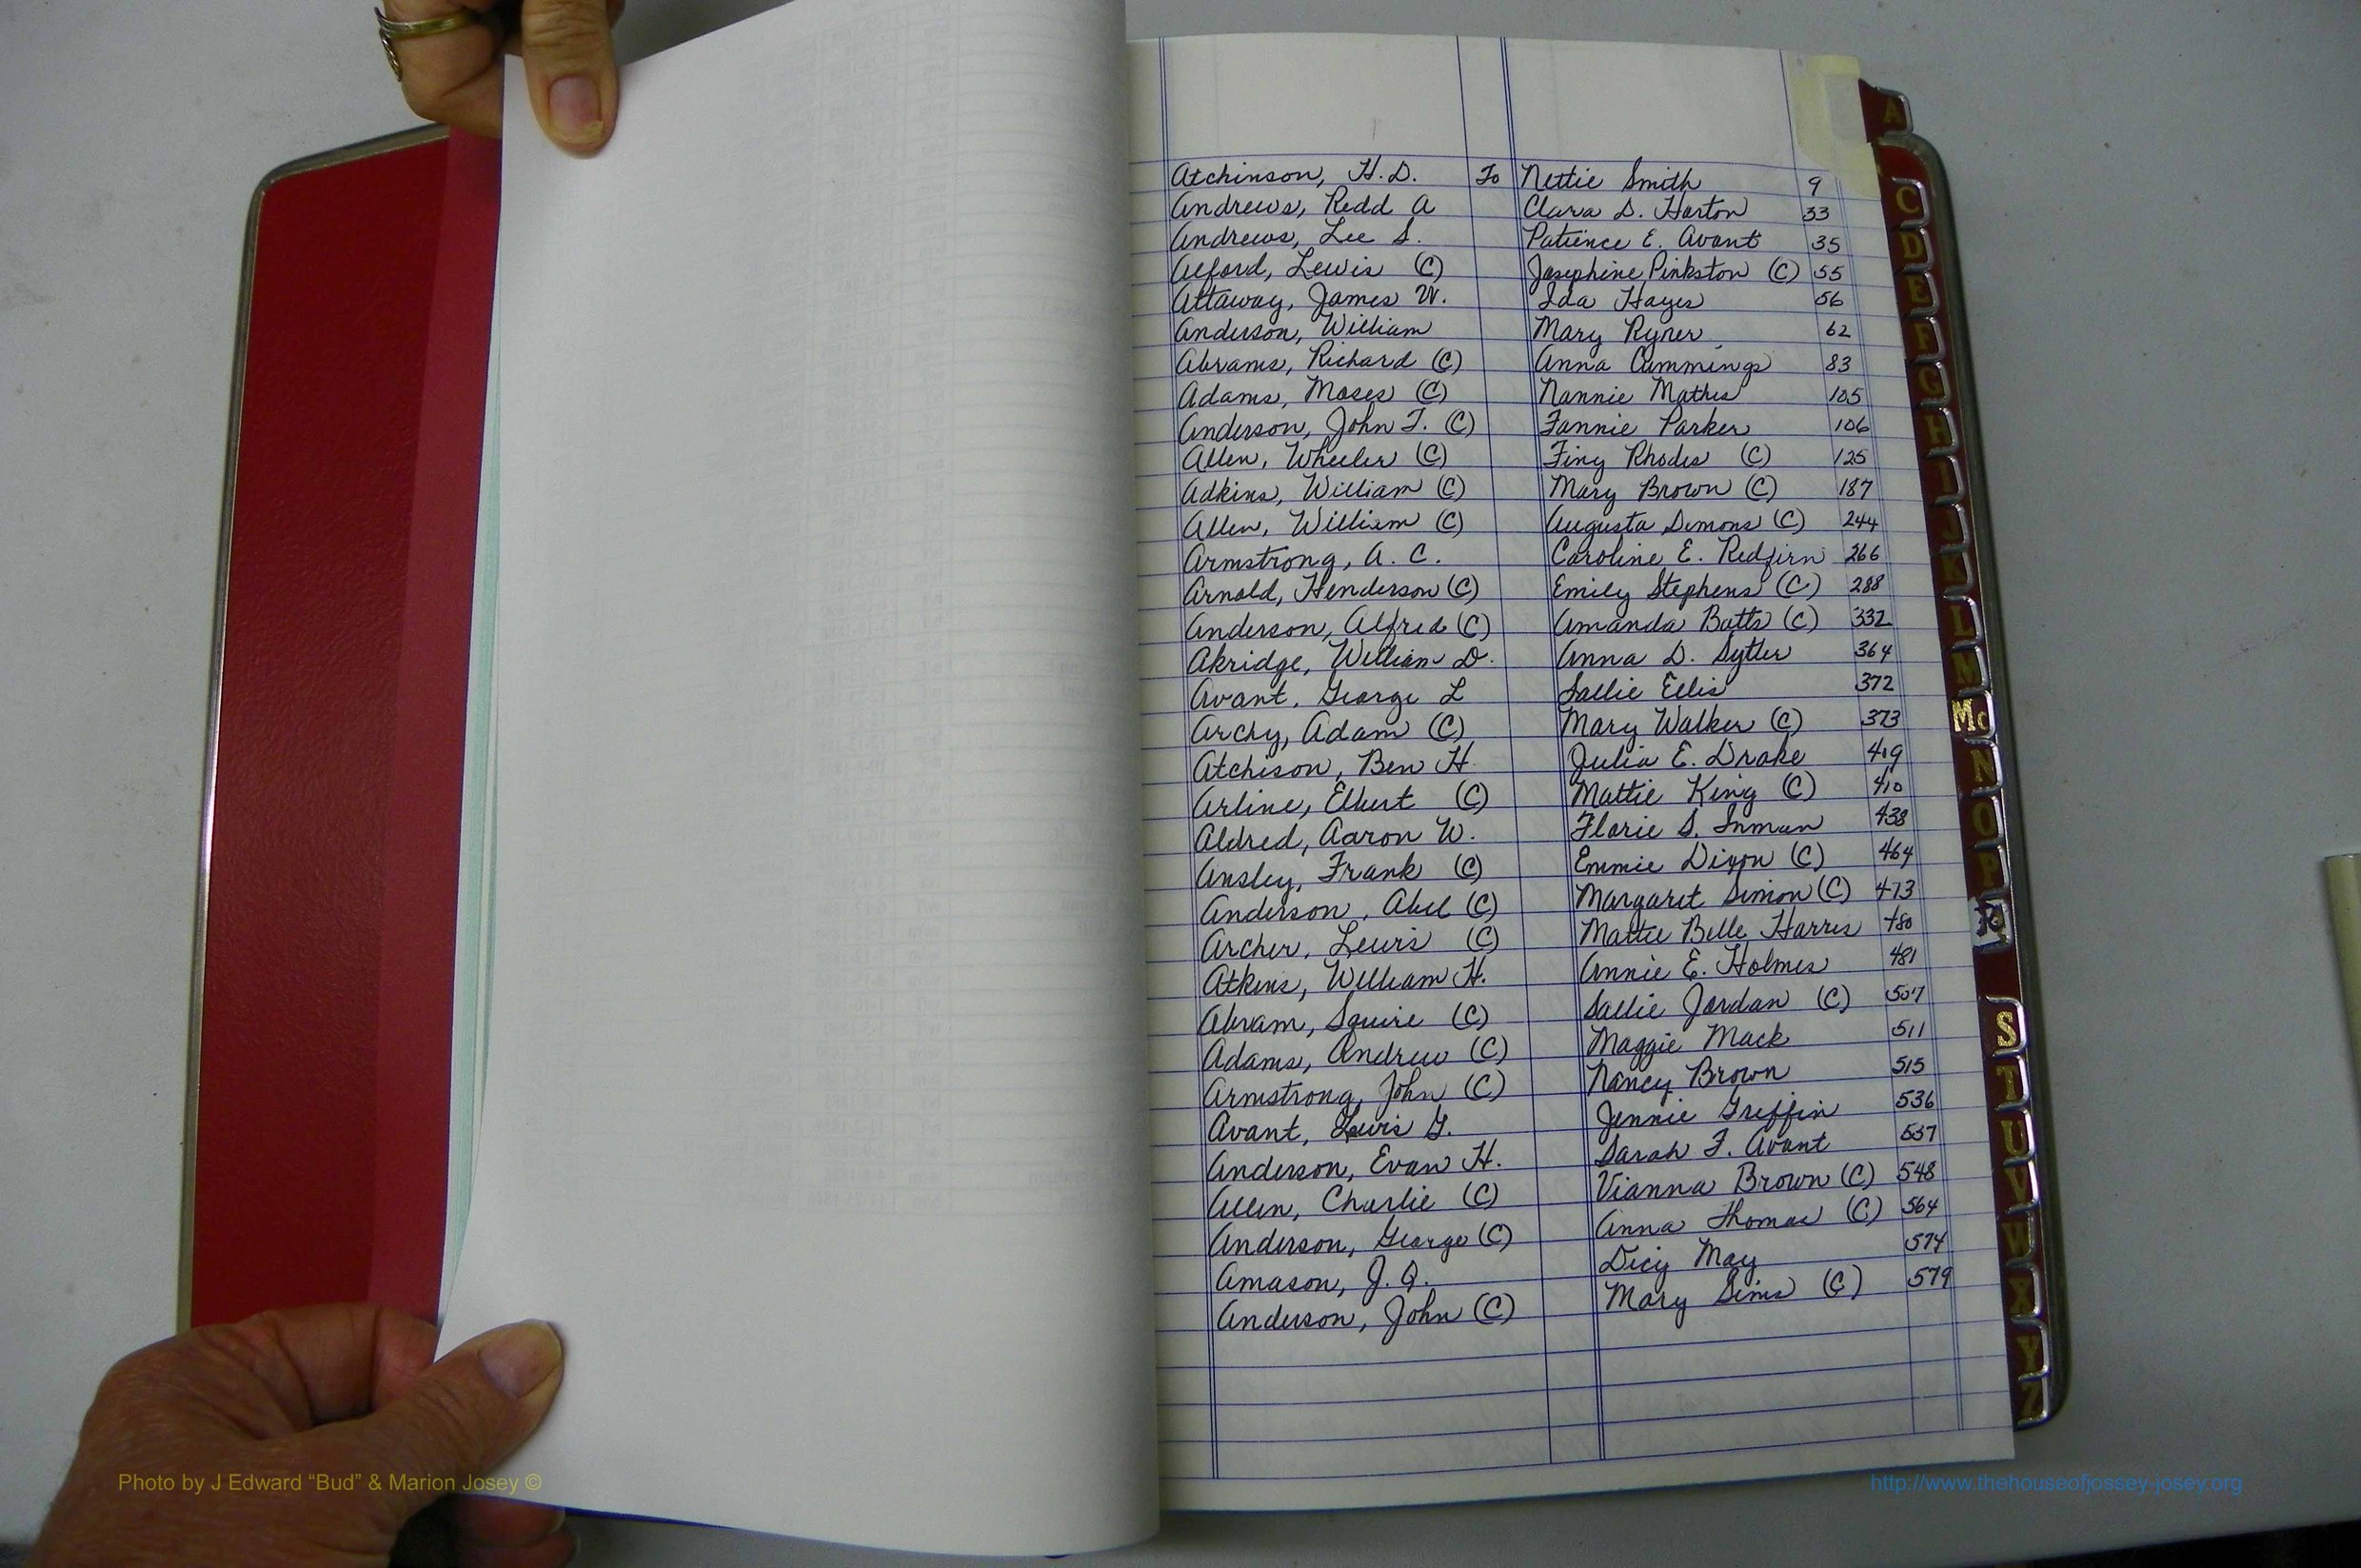 Atchinson, H. D. To Nettie Smith 9
Andrews, Redd A Clara D. Horton 33
Andrews, Lee S. Patience E. Avant 35
Alford, Lewis (C) Josephine Pinkston (C) 55
Attaway, James W. Ida Hayes 56
Anderson, William Mary Ryner 62
Abrams, Richard (C) Anna Cummings 83
Adams, Moses (C) Nannie Mathis 105
Anderson, John T. (C) Fannie Parker 106
Allen, Wheeler (C) Finy Rhodes (C) 125
Adkins, William (C) Mary Brown (C) 187
Allen, William (C) Augusta Simons (C) 244
Armstrong, A. C. Caroline E. Redfirn 266
Arnold, Henderson (C) Emily Stephens (C) 288
Anderson, Alfred (C) Amanda Batts (C) 332
Akridge, William D. Anna D. 364
Avant, George L Sallie Ellis 372
Archy, Adam (C) Mary Walker (C) 373
Atchison, Ben H. Julia E. Drake 419
Arline, Elbert (C) Mattie King (C) 410
Aldred, Aaron W. Florie S. Inman 438
Ansley, Frank (C) Emmie Dixon (C) 464
Anderson, Abel (C) Margaret Simon (C) 473
Archer, Lewis (C) Mattie Belle Harris 480
Atkins, William H. Annie E. Holmes 481
Abram, Squire (C) Sallie Jordan (C) 507
Adams, Andrew (C) Maggie Mack 511
Armstrong, John (C) Nancy Brown 515
Avant, Lewis G. Jennie Griffin 536
Anderson, Evan H. Sarah F. Avant 537
Allen, Charlie (C) Vianna Brown (C) 548
Anderson, George (C) Anna Thomas (C) 564
Amason, J. Q. Dicy May 574
Anderson, John (C) Mary Sims (C) 579
A
C
D
E
F
G
H
I
J
K
L
M
Mc
N
O
P
R
S
T
U
V
W
X
Y
Z
Photo by J Edward “Bud” & Marion Josey ©
http://www.thehouseofjossey-josey.org